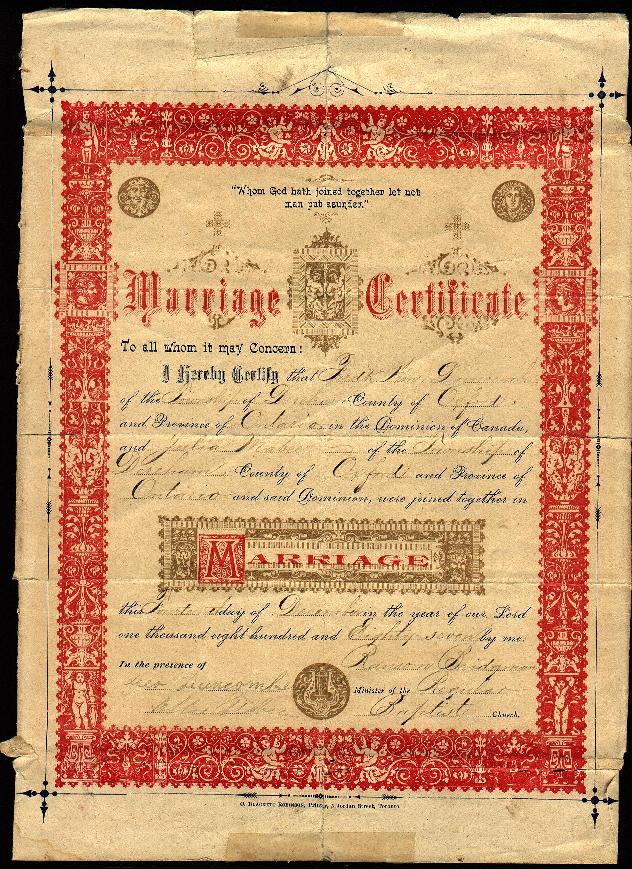 "Whom God hath joined together let not
man put asunder."
Marriage Certificate
To all whom it may Concern:
I Hereby Certify that
of the Township of County of Oxford
and Province of Ontario in the Dominion of Canada,
and Julia of the Township of
Dereham County of Oxford and Province of
Ontario and said Dominion, were joined together in
MARRIAGE
this day of December in the year of our Lord
one thousand eight hundred and Eighty seven by me.
In the presence of
Minister of the Regular
Baptist Church.
C. BLACKETT ROBINSON, Printer, 5 Jordan Street, Toronto